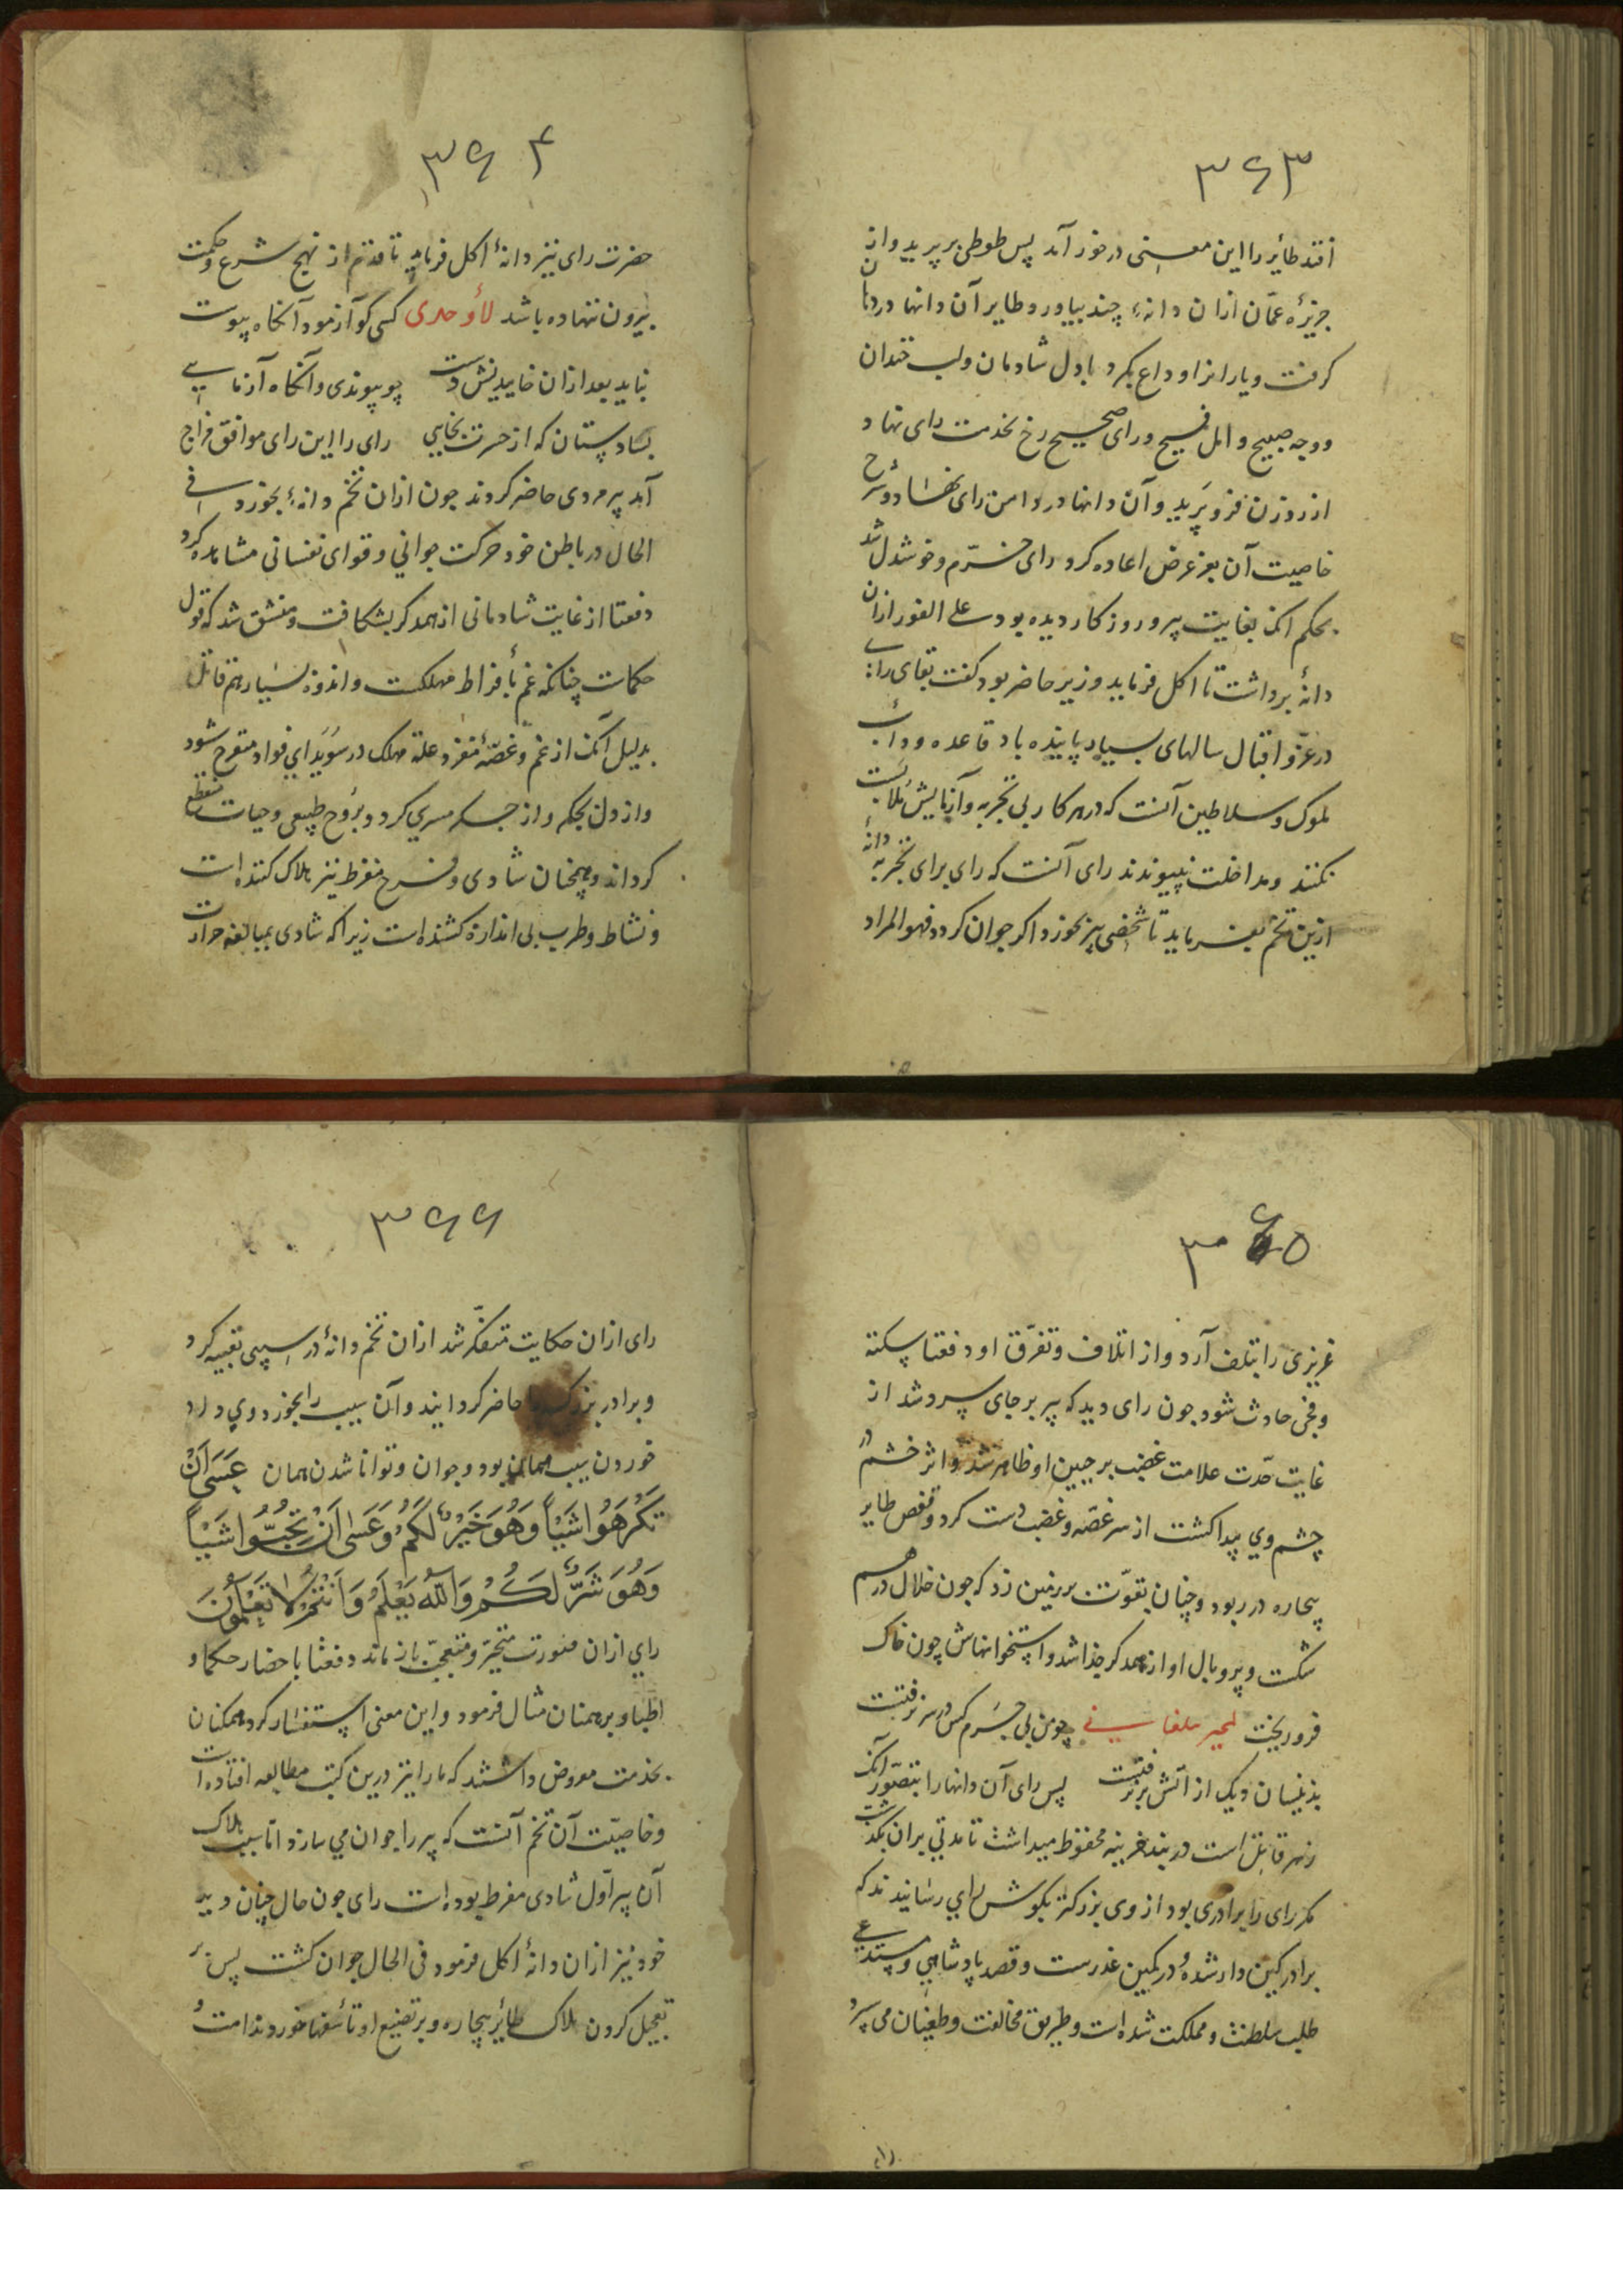 ۳۶۳
افتد طائر را این معنی در خور آمد پس طوطی بر پرید و از
جزیرهٔ عمّان ازان دانهٔ چند بیاورد و طایر آن دانها در دهان
کرفت و یارانرا وداع بکرد با دل شادمان و لب خندان
و وجه صبیح و امل فسیح و رای صحیح رخ بخدمت رای نهاد و
از روزن فرو پرید و آن دانها در دامن رای نهاد و شرح
خاصیت آن بعز عرض اعاده کرد رای خرّم و خوشدل شد
بحکم انک بغایت پیر و روز کار دیده بود علی الفور ازان
دانهٔ برداشت تا اکل فرماید وزیر حاضر بود کفت بقای رای
در عزّ و اقبال سالهای بسیار پاینده باد قاعده و دأب
ملوک و سلاطین آنست که در هر کار بی تجربه و آزمایش ملابست
نکنند و مداخلت نپیوندند رای آنست که رای برای تجربه دانهٔ
ازین تخم بفرماید تا شخصی پیر بخورد اکر جوان کردد فهو المراد
۳۶۴
حضرت رای نیز دانهٔ اکل فرماید تا قدم از نهج شرع و حکمت
بیرون ننهاده باشد لأوحدی کسی کو آزمود آنکاه پیوست
نباید بعد ازان خاییدنش دست چو پیوندی و آنکاه آزمایی
بسا دستان که از حسرت بخایی رای را این رای موافق مزاج
آمد پیر مردی حاضر کردند جون ازان تخم دانهٔ بخورد فی
الحال در باطن خود حرکت جوانی و قوای نفسانی مشاهده کرد
دفعتا از غایت شادمانی از همدکر بشکافت و منشق شد که قول
حکماست چنانکه غم بأفراط مهلکست و اندوه بسیار هم قاتل
بدلیل آنک از غم و غصّهٔ مفرد علة مهلک در سُوَیدای فواد متقرح شود
و از دل بجکر و از جکر مسری کردد و بروح طبیعی و حیات منقطع
کرداند و همچنان شادی و فرح مفرط نیز هلاک کننده است
و نشاط و طرب بی اندازه کشنده است زیرا که شادی بمبالغه حرارت
۳۶۵
غریزی را بتلف آرد و از اتلاف و تفرّق او دفعتا سکته
و فجی حادث شود جون رای دید که پیر بر جای سرد شد از
غایت حدّت علامت غضب بر جبین او ظاهر شد و اثر خشم در
چشم وی پیدا کشت از سر غصّه و غضب دست کرد و قفص طایر
بیچاره در ربود و چنان بقوّت بر زمین زد که جون خلال در هم
شکست و پر و بال او از همدکر جذا شد و استخوانهاش چون خاک
فرو ریخت لمجیر بیلقانی چو من بی جرم کس در سر نرفتست
بذینسان دیک از آتش بر نرفتست پس رای آن دانها را بتصوّر آنک
زهر قاتل است در بند خزینه محفوظ میداشت تا مدتی بران بکذشت
مکر رای را برادری بود از وی بزرکتر بکوش رای رسانیدند که
برادر کین دار شده و در کمین غدرست و قصد پادشاهی و مستدعی
طلب سلطنت و مملکت شده است و طریق مخالفت و طغیان می سپرد
۳۶۶
رای ازان حکایت متفکّر شد ازان تخم دانهٔ در سیبی تعبیه کرد
و برادر بزرکتر را حاضر کردانیند و آن سیب را بخورد وی داد
خوردن سیب همان بود و جوان و توانا شدن همان عَسَىٰ اَنْ
تَكْرَهُوا شَيْئاً وَهُوَ خَيْرٌ لَكُمْ وَعَسَىٰ اَنْ تُحِبُّوا شَيْئاً
وَهُوَ شَرٌّ لَكُمْ وَاللهُ يَعْلَمُ وَاَنْتُمْ لَا تَعْلَمُونَ
رای ازان صورت متحیّر و متعجّب باز ماند دفعتا باحضار حکما و
اطبا و برهمنان مثال فرمود و این معنی استفسار کرد همکنان
بخدمت معروض داشتند که ما را نیز درین کتب مطالعه افتاده است
و خاصیّت آن تخم آنست که پیر را جوان می سازد اما سبب هلاک
آن پیر اوّل شادی مفرط بوده است رای جون حال چنان دید
خود نیز ازان دانهٔ اکل فرمود فی الحال جوان کشت پس بر
تعجیل کردن هلاک طائر بیچاره و بر تضییع او تأسّفها خورد و ندامت